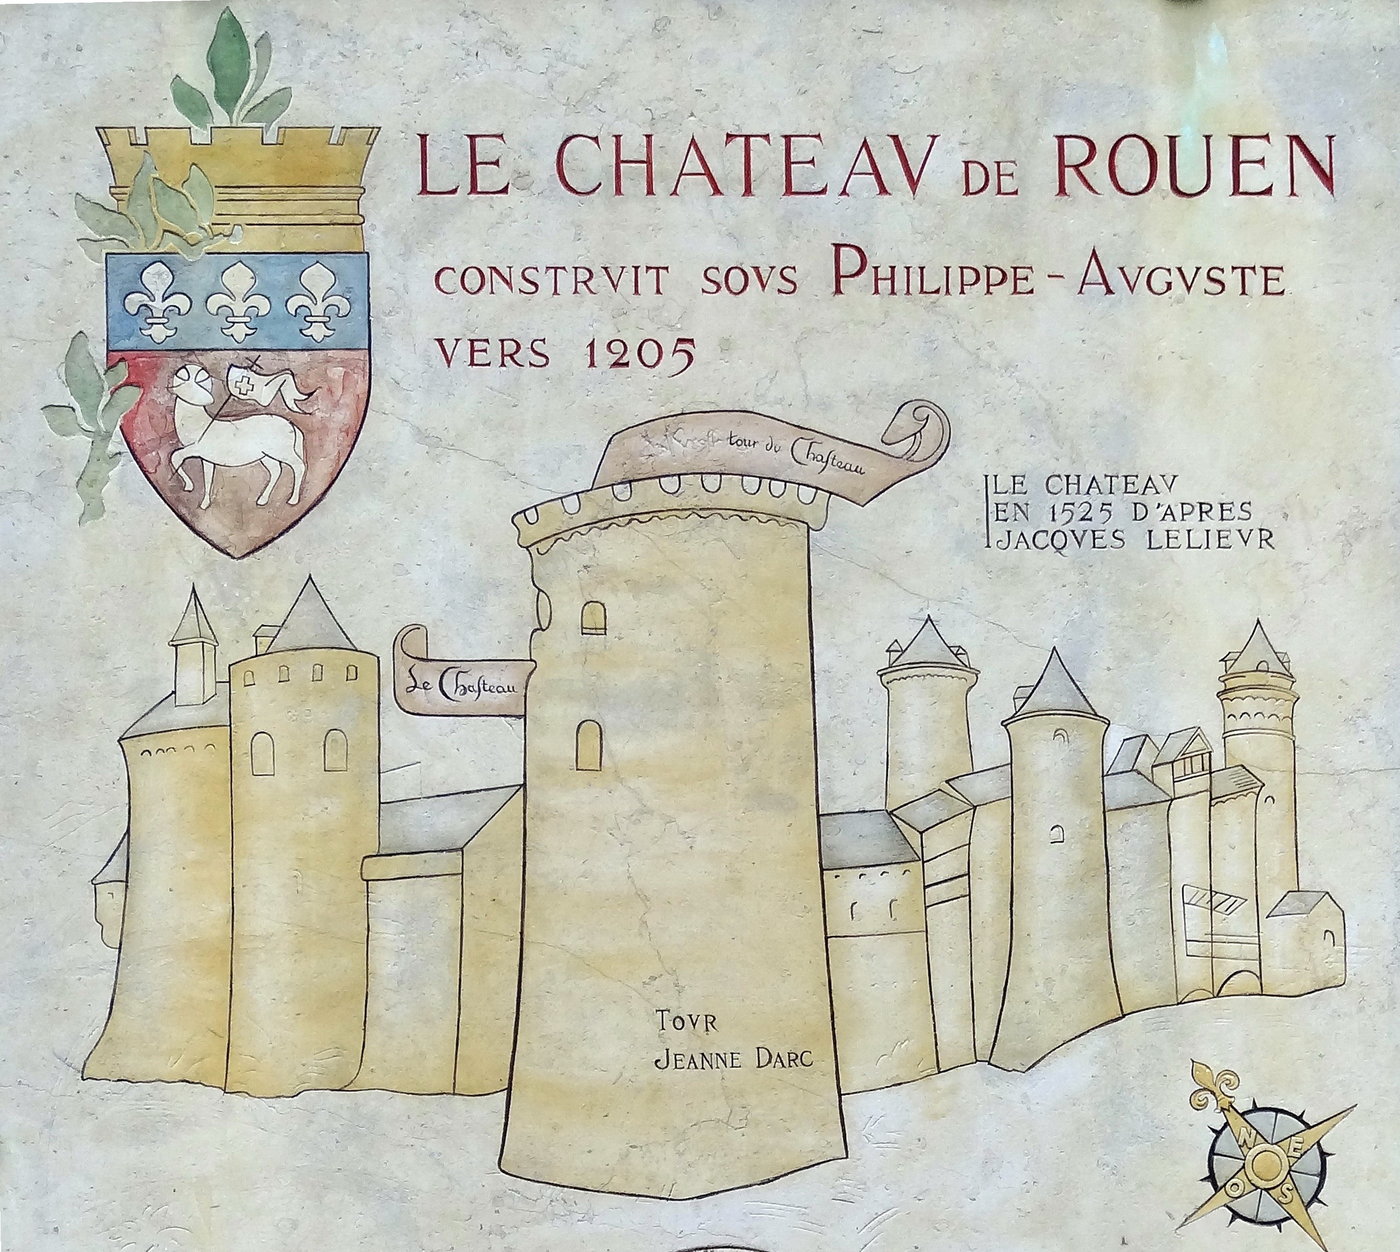 LE CHATEAV DE ROUEN
CONSTRVIT SOVS PHILIPPE-AVGVSTE
VERS 1205
Grosse tour du Chasteau
LE CHATEAV
EN 1525 D'APRES
JACQVES LELIEVR
Le Chasteau
TOVR
JEANNE DARC
N
E
O
S